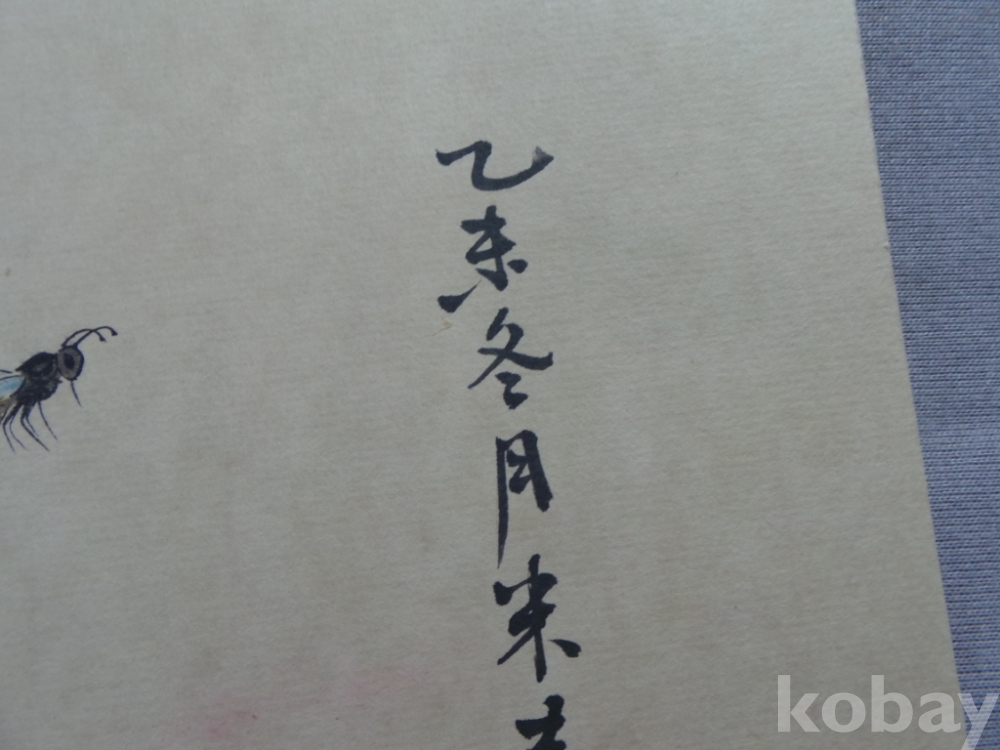 乙未冬月米
kobay